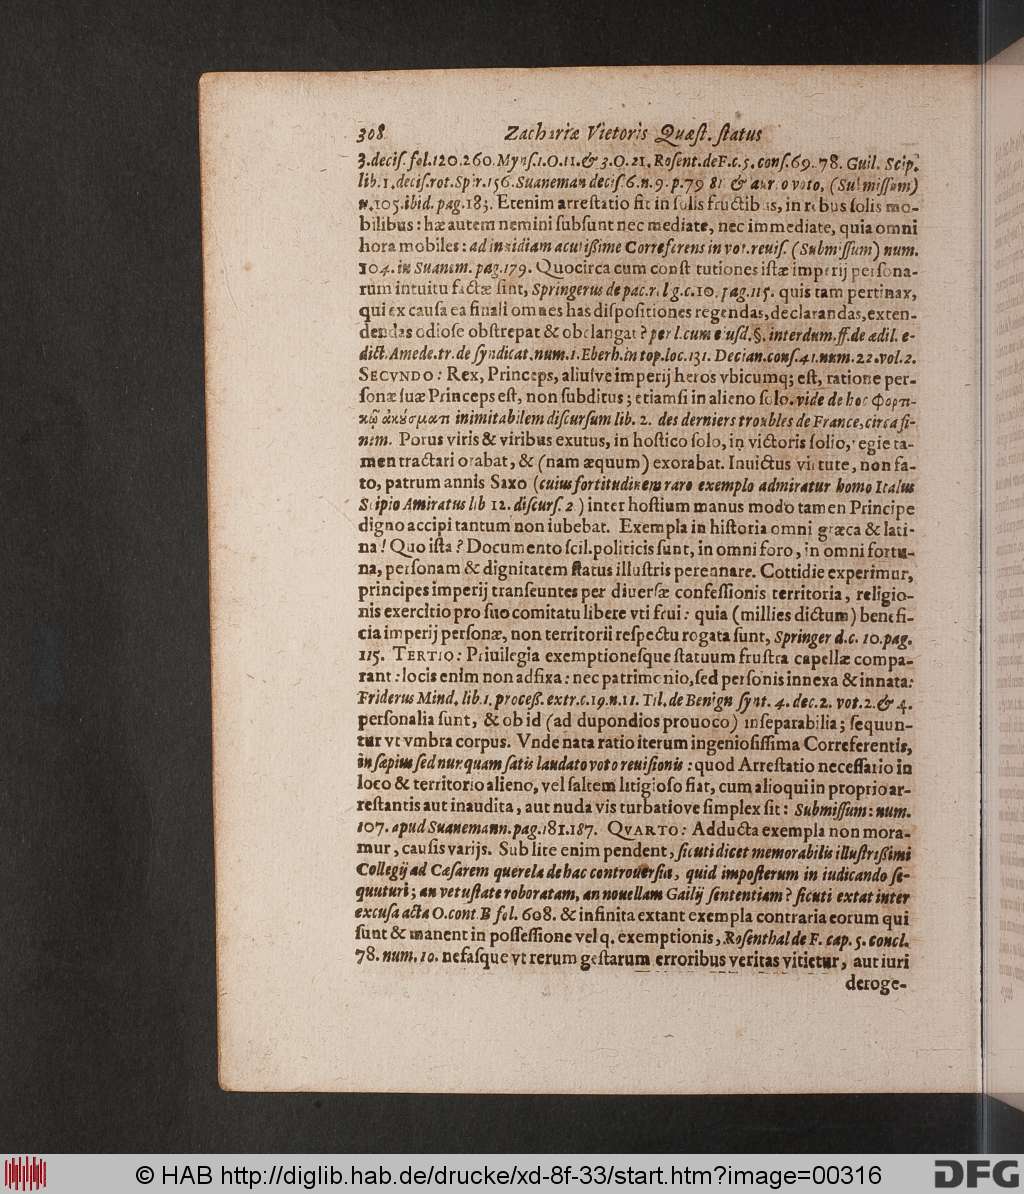 308 Zachariæ Vietoris Quæſt. ſtatus
3. deciſ. fol. 120. 260. Mynſ. 1. O. 11. & 3. O. 21. Roſent. de F. c. 5. conſ. 69. 78. Guil. Scip.
lib. 1. deciſ. rot. Spir. 156. Suaneman deciſ. 6. n. 9. p. 79 81 & aur o voto, (Submiſſum)
n. 105. ibid. pag. 183. Etenim arreſtatio fit in ſolis fructibus, in rebus ſolis mo-
bilibus: hæ autem nemini ſubſunt nec mediate, nec immediate, quia omni
hora mobiles: ad inuidiam acutißime Correferens in vot. reuiſ. (Submiſſum) num.
104. in Suanem. pag. 179. Quocirca cum conſtitutiones iſtæ imperij perſona-
rum intuitu factæ ſint, Springerus de pac. r. lg. c. 10. pag. 115. quis tam pertinax,
qui ex cauſa ea finali omnes has diſpoſitiones regendas, declarandas, exten-
dendas odioſe obſtrepat & oblangat? per l. cum eiuſd. §. interdum. ff. de ædil. e-
dict. Amede. tr. de ſyndicat. num. 1. Eberh. in top. loc. 131. Decian. conſ. 41. num. 22. vol. 2.
SECVNDO: Rex, Princeps, aliuſve imperij heros vbicumq; eſt, ratione per-
ſonæ ſuæ Princeps eſt, non ſubditus; etiamſi in alieno ſolo. vide de hoc Φορτι-
κῶ ἀκούσματι inimitabilem diſcurſum lib. 2. des derniers troubles de France, circa fi-
nem. Porus viris & viribus exutus, in hoſtico ſolo, in victoris ſolio, regie ta-
men tractari orabat, & (nam æquum) exorabat. Inuictus virtute, non fa-
to, patrum annis Saxo (cuius fortitudinem raro exemplo admiratur homo Italus
Scipio Amiratus lib 12. diſcurſ. 2.) inter hoſtium manus modo tamen Principe
digno accipi tantum non iubebat. Exempla in hiſtoria omni græca & lati-
na! Quo iſta? Documento ſcil. politicis ſunt, in omni foro, in omni fortu-
na, perſonam & dignitatem ſtatus illuſtris perennare. Cottidie experimur,
principes imperij tranſeuntes per diuerſæ confeſſionis territoria, religio-
nis exercitio pro ſuo comitatu libere vti frui: quia (millies dictum) benefi-
cia imperij perſonæ, non territorii reſpectu rogata ſunt, Springer d. c. 10. pag.
115. TERTIO: Priuilegia exemptioneſque ſtatuum fruſtra capellæ compa-
rant: locis enim non adfixa: nec patrimonio, ſed perſonis innexa & innata:
Friderus Mind. lib. 1. proceß. extr. c. 19. n. 11. Til. de Benign ſynt. 4. dec. 2. vot. 2. & 4.
perſonalia ſunt, & ob id (ad dupondios prouoco) inſeparabilia; ſequun-
tur vt vmbra corpus. Vnde nata ratio iterum ingenioſiſſima Correferentis,
in ſæpius ſed nunquam ſatis laudato voto reuiſionis: quod Arreſtatio neceſſario in
loco & territorio alieno, vel ſaltem litigioſo fiat, cum alioqui in proprio ar-
reſtantis aut inaudita, aut nuda vis turbatiove ſimplex ſit: Submiſſum: num.
107. apud Suanemann. pag. 181. 187. QVARTO: Adducta exempla non mora-
mur, cauſis varijs. Sub lite enim pendent, ſicuti dicet memorabilis illuſtrißimi
Collegij ad Cæſarem querela de hac controverſia, quid impoſterum in iudicando ſe-
quuturi; an vetuſtate roboratam, an nouellam Gailij ſententiam? ſicuti extat inter
excuſa acta O. cont. B fol. 608. & infinita extant exempla contraria eorum qui
ſunt & manent in poſſeſſione vel q. exemptionis, Roſenthal de F. cap. 5. concl.
78. num. 10. nefaſque vt rerum geſtarum erroribus veritas vitietur, aut iuri
deroge-
© HAB http://diglib.hab.de/drucke/xd-8f-33/start.htm?image=00316
DFG